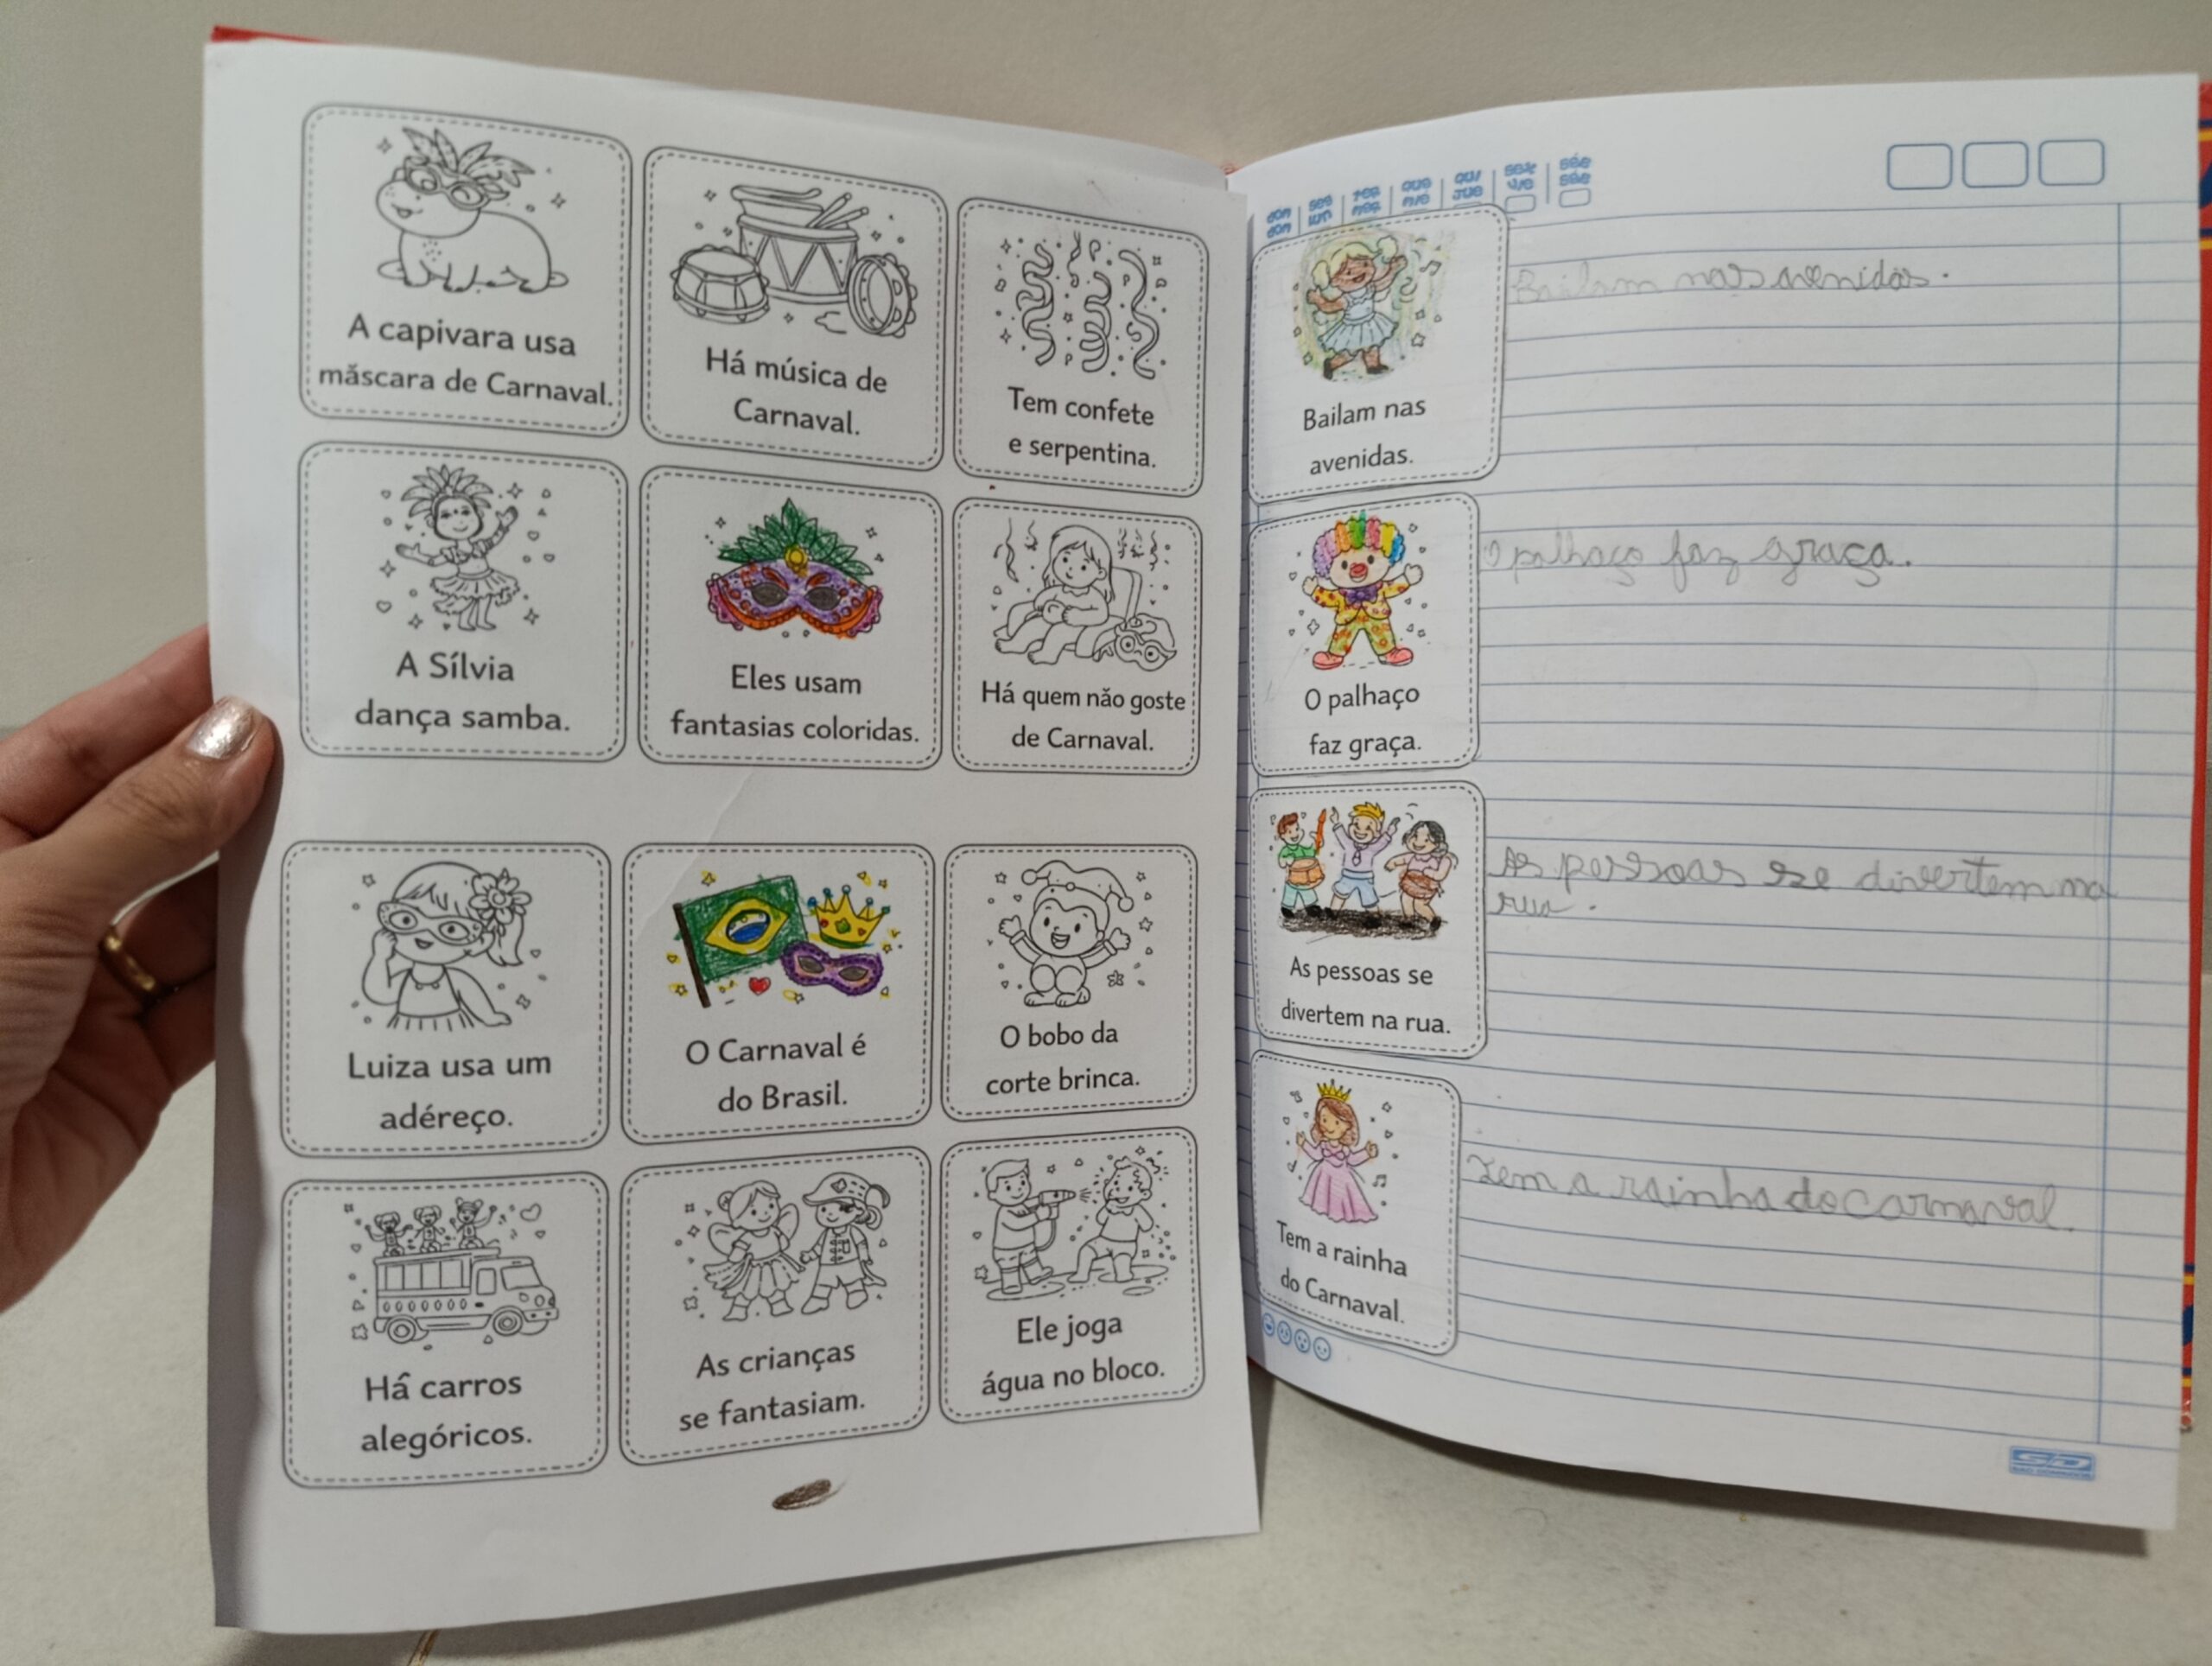 A capivara usa
măscara de Carnaval.
Há música de
Carnaval.
Tem confete
e serpentina.
A Sílvia
dança samba.
Eles usam
fantasias coloridas.
Há quem não goste
de Carnaval.
Luiza usa um
adéreço.
O Carnaval é
do Brasil.
O bobo da
corte brinca.
Hâ carros
alegóricos.
As crianças
se fantasiam.
Ele joga
água no bloco.
dom seg ter qua qui sex sáb
Bailam nas
avenidas.
Bailam nas avenidas.
O palhaço
faz graça.
O palhaço faz graça.
As pessoas se
divertem na rua.
As pessoas se divertem na
rua.
Tem a rainha
do Carnaval.
Tem a rainha do carnaval.
SÃO DOMINGOS